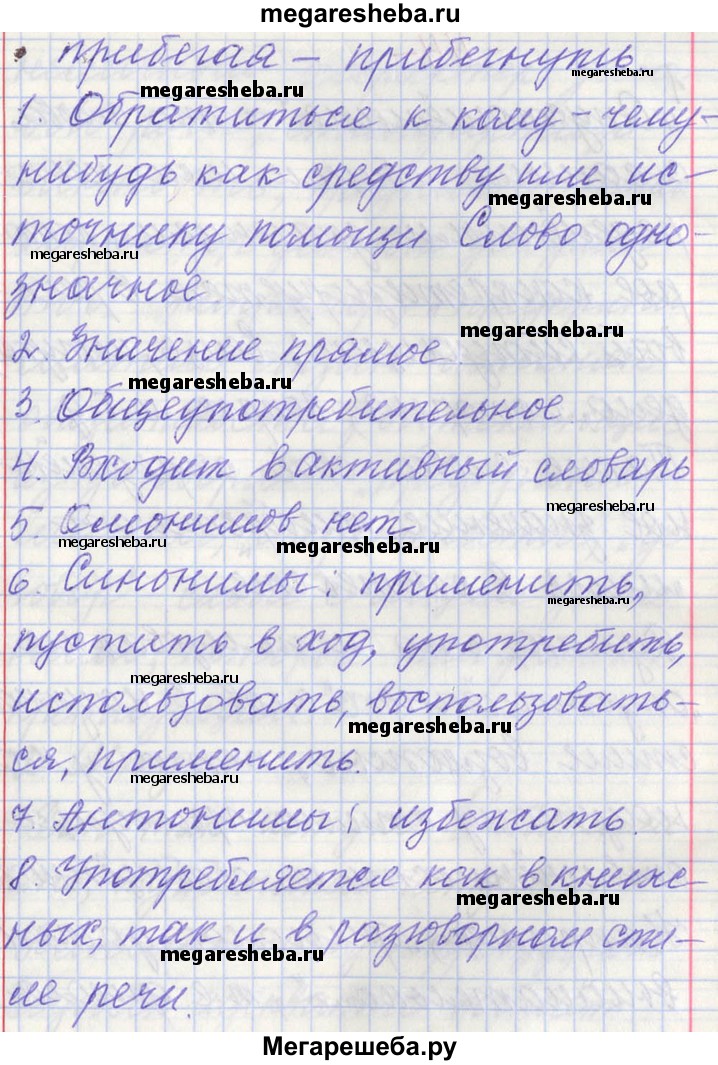 megaresheba.ru
прибегая – прибегнуть
megaresheba.ru
megaresheba.ru
1. Обратиться к кому-чему-
нибудь как средству или ис-
megaresheba.ru
точнику помощи Слово одно-
megaresheba.ru
значное.
2. Значение прямое
megaresheba.ru
megaresheba.ru
3. Общеупотребительное.
4. Входит в активный словарь
megaresheba.ru
5. Омонимов нет
megaresheba.ru
megaresheba.ru
6. Синонимы: применить,
megaresheba.ru
пустить в ход, употребить,
megaresheba.ru
использовать, воспользовать-
megaresheba.ru
ся, применить.
megaresheba.ru
7. Антонимы: избежать.
8. Употребляется как в книж-
megaresheba.ru
ных, так и в разговорном сти-
megaresheba.ru
ле речи.
Мегарешеба.ру